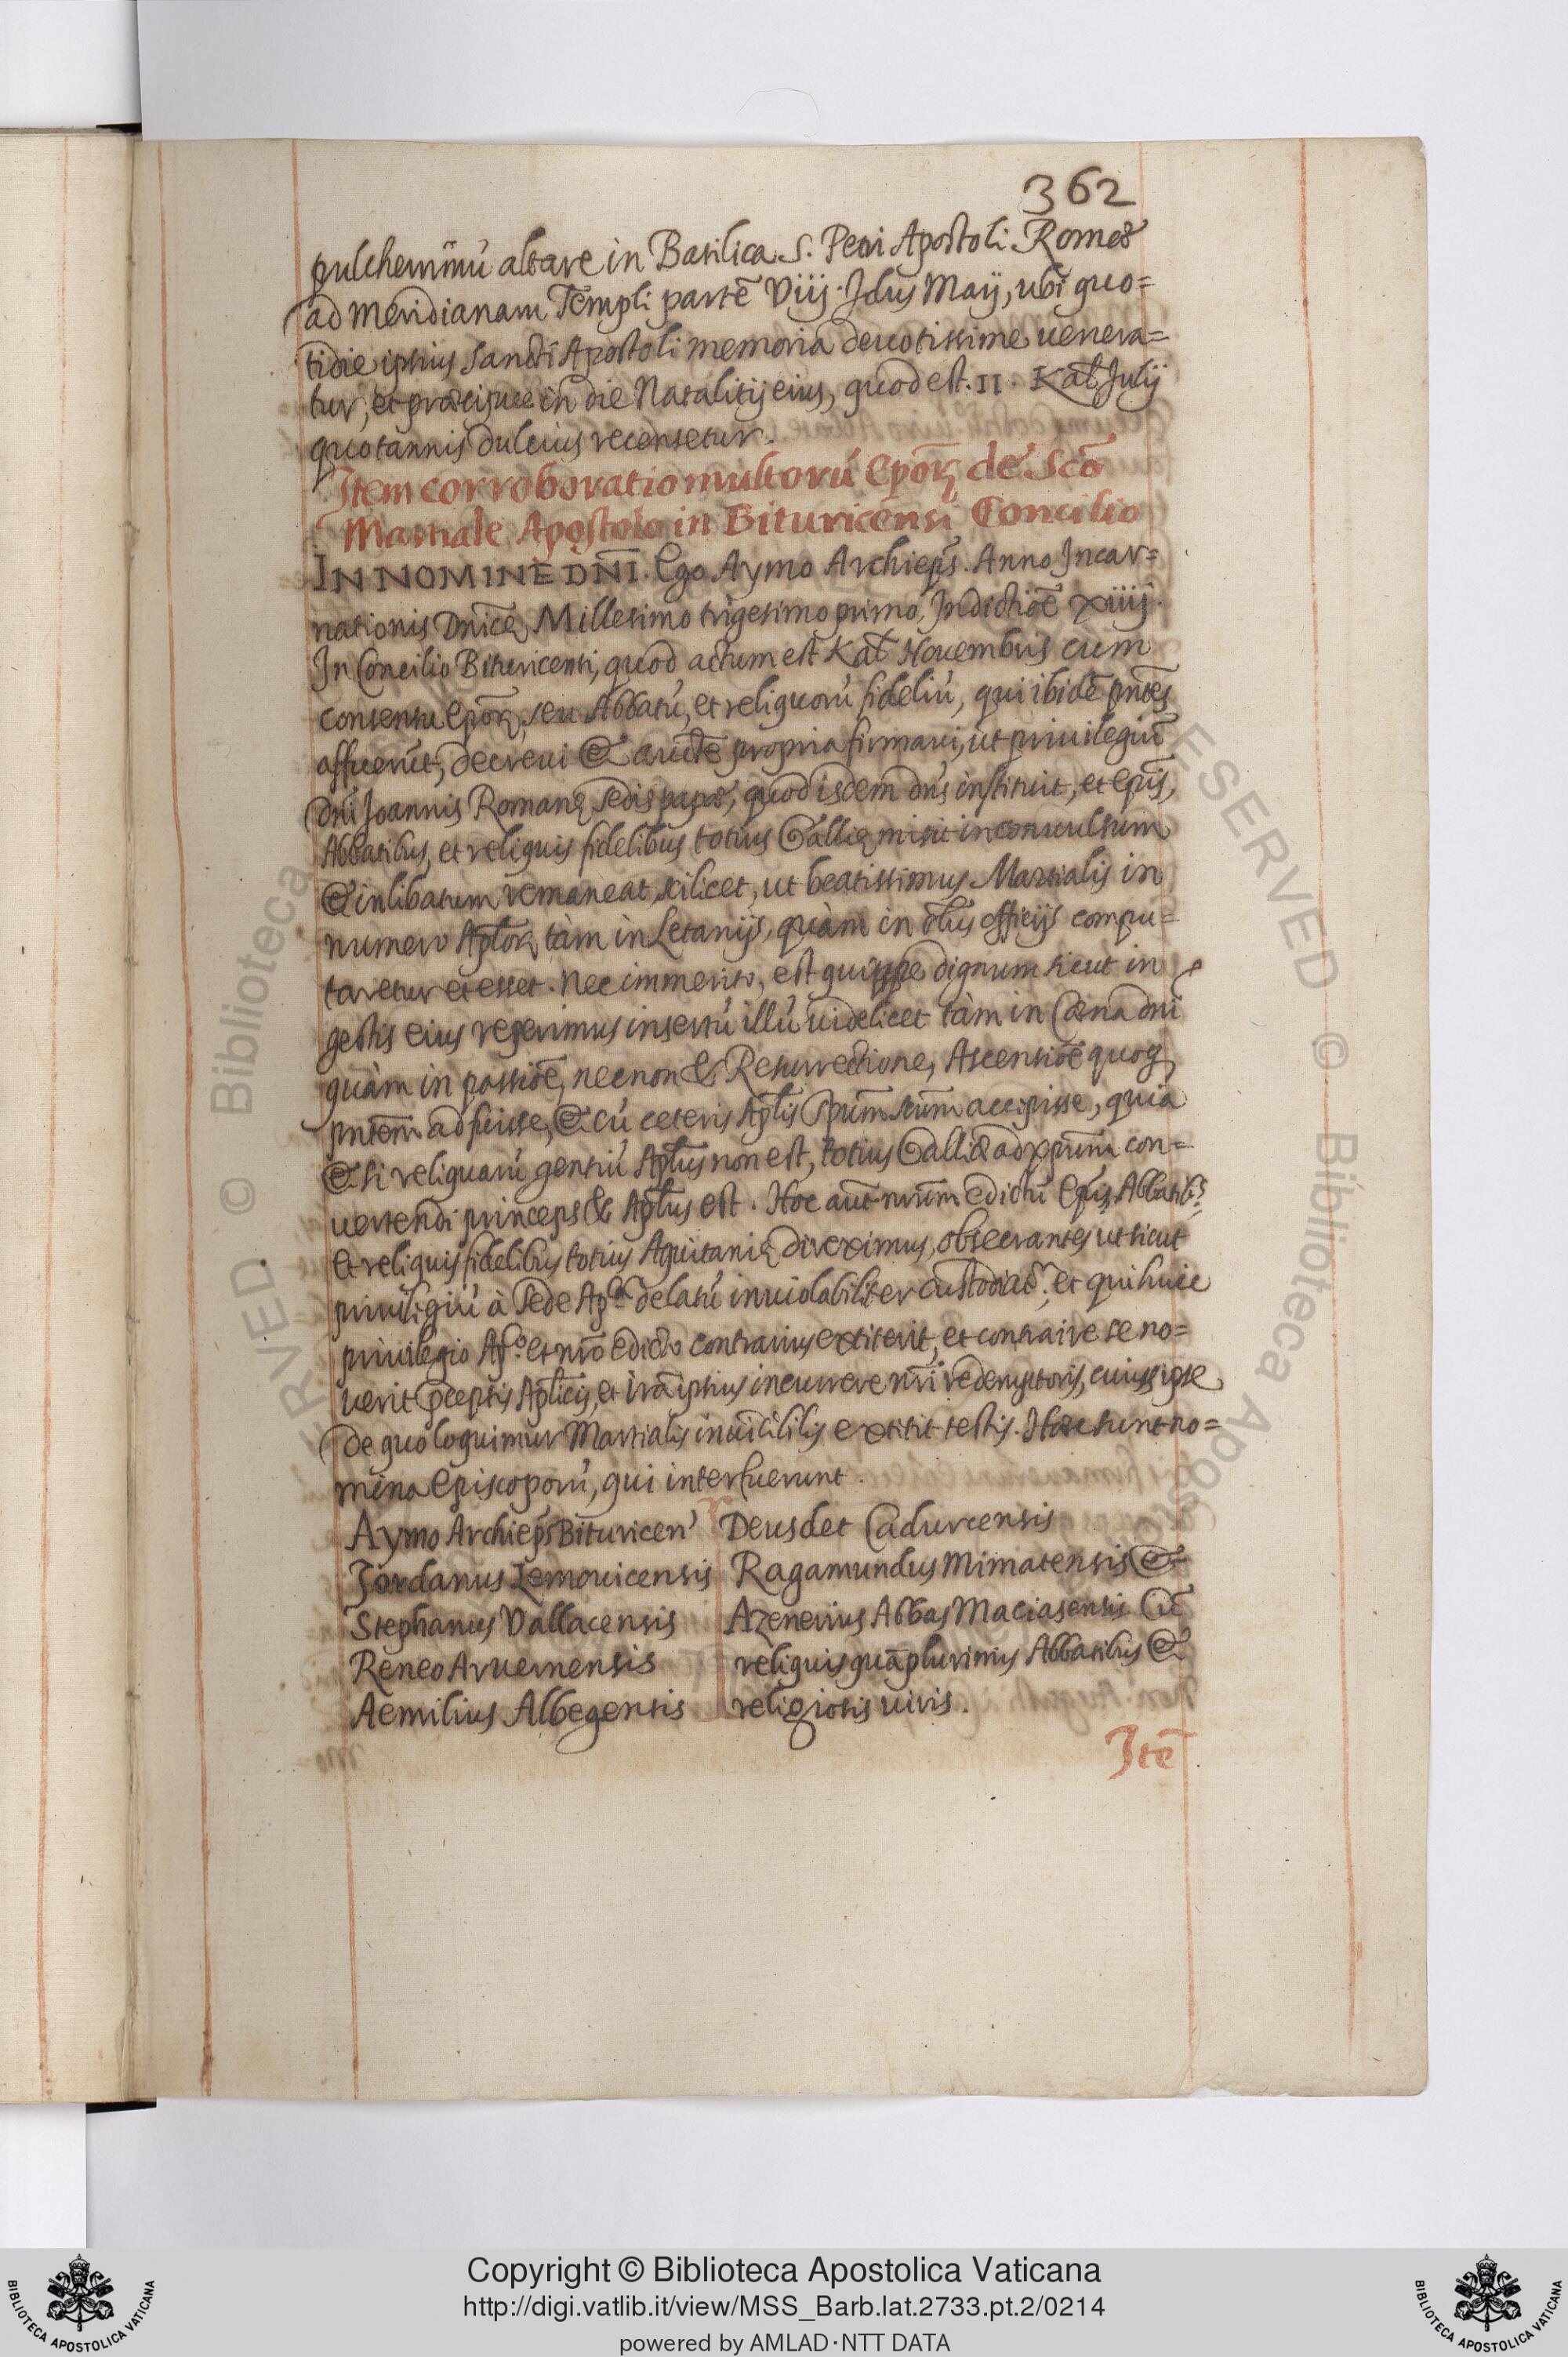 362
pulcherrimũ altare in Basilica S. Petri Apostoli Romæ
ad meridianam Templi partẽ Viij. Idus Maij, ubi quo=
tidie ipsius Sancti Apostoli memoria deuotissime uenera=
tur, et præcipue in die Natalitij eius, quod est. II. Kal Julij
quotannis dulcius recensetur.
Item corroboratio multorũ Epõꝝ de Scõ
Martiale Apostolo in Bituricensi Concilio
IN NOMINE DÑI. Ego Aymo Archiep̃s. Anno Incar=
nationis Dnicę Millesimo trigesimo primo, Indictiõe xiiij.
In Concilio Bituricensi, quod actum est Kal Nouembris cum
consensu Epõꝝ, seu Abbatũ, et reliquorũ fideliũ, qui ibidẽ pñtes
affuerũt, decreui & auctẽ propria firmaui, ut priuilegiũ
dñi Joannis Romanę sedis papæ, quod isdem dñs instituit, et Epis,
Abbatibus, et reliquis fidelibus totius Gallię misit inconuulsum
& inlibatum remaneat, scilicet, ut beatissimus Martialis in
numero Aplõꝝ tàm in Letanijs, quàm in õibus officijs compu=
taretur et esset. Nec immerito, est quippe dignum sicut in
gestis eius reperimus insertũ illũ uidelicet tàm in Cæna dñi
quàm in passiõe, necnon & Resurrectione, Ascensiõe quoq
pñtem adfuisse, & cũ ceteris Aplis Spũm scũm accepisse, quia
& si reliquarũ gentiũ Aplus non est, totius Galliæ ad xpũm con=
uertendi princeps & Aplus est. Hoc aut nrũm edictũ Epis, Abbatib9
et reliquis fidelibus totius Aquitanię direximus, obsecrantes ut sicut
priuilegiũ à Sede Ap.ca delatũ inuiolabiliter custodiat.r, et qui huic
priuilegio Ap.co et nrõ edicto contrarius extiterit, et contraire se no=
uerit pceptis Aplicis, et irã ipsius incurrere nr̃i redemptoris, cuius ipse
de quo loquimur Martialis inuicibilis extitit testis. Hæc sunt no=
mina Episcoporũ, qui interfuerunt.
Aymo Archiep̃s Bituricen̓
Jordanus Lemouicensis
Stephanus Vallacensis
Reneo Aruernensis
Aemilius Albegensis
Deusdet Cadurcensis
Ragamundus Mimatensis &
Azenerius Abbas Maciasensis Cũ
reliquis quãplurimis Abbatibus &
religiosis uiris.
Itẽ
Copyright © Biblioteca Apostolica Vaticana
http://digi.vatlib.it/view/MSS_Barb.lat.2733.pt.2/0214
powered by AMLAD·NTT DATA
BIBLIOTECA APOSTOLICA VATICANA
BIBLIOTECA APOSTOLICA VATICANA